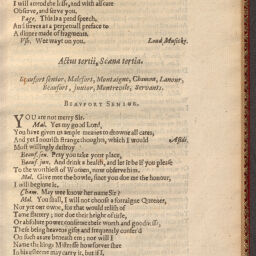 I will attend the issue, and with all care
Observe, and serve you.
Page. This is a pend speech,
And serves as a perpetuall preface to
A dinner made of fragments.
Ush. Wee wayt on you. Loud Musicke.
Actus tertii, Scæna tertia.
Beaufort senior, Malefort, Montaigne, Chamont, Lanour,
Beaufort, junior, Montrevile, Servants.
BEAUFORT SENIOR.
YOU are not merry Sir.
Mal. Yes my good Lord,
You have given us ample meanes to drowne all cares,
And yet I nourish strange thoughts, which I would Aside.
Most willingly destroy
Beauf. sen. Pray you take your place,
Beauf. jun. And drinke a health, and let it be if you please
To the worthiest of Women, now observe him.
Mal. Give mee the bowle, since you doe me the honour,
I will beginne it.
Cham. May wee know her name Sir?
Mal. You shall, I will not choose a forraigne Queene,
Nor yet our owne, for that would rellish of
Tame flattery; nor doe their height of title,
Or absolute power, confirme their worth and goodnesse,
These being heavens gifts and frequently confer'd
On such as are beneath em; nor will I
Name the kings Mistresse howsoever shee
In his esteeme may carry it, but if I,